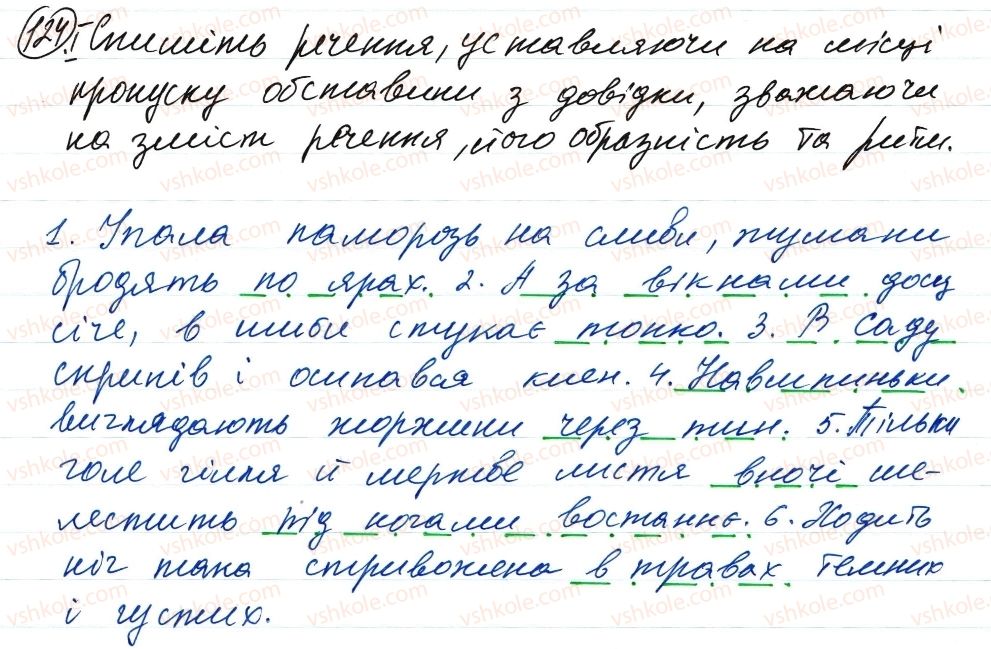 124.I Спишіть речення, уставляючи на місці
пропуску обставини з довідки, зважаючи
на зміст речення, його образність та ритм.
1. Упала паморозь на сливи, тумани
бродять по ярах. 2. А за вікнами дощ
січе, в шиби стукає тонко. 3. В саду
скрипів і осипався клен. 4. Навшпиньки
виглядають жоржини через тин. 5. Тільки
голе гілля й мертве листя вночі ше-
лестить під ногами востаннє. 6. Ходить
ніч така стривожена в травах темних
і густих.